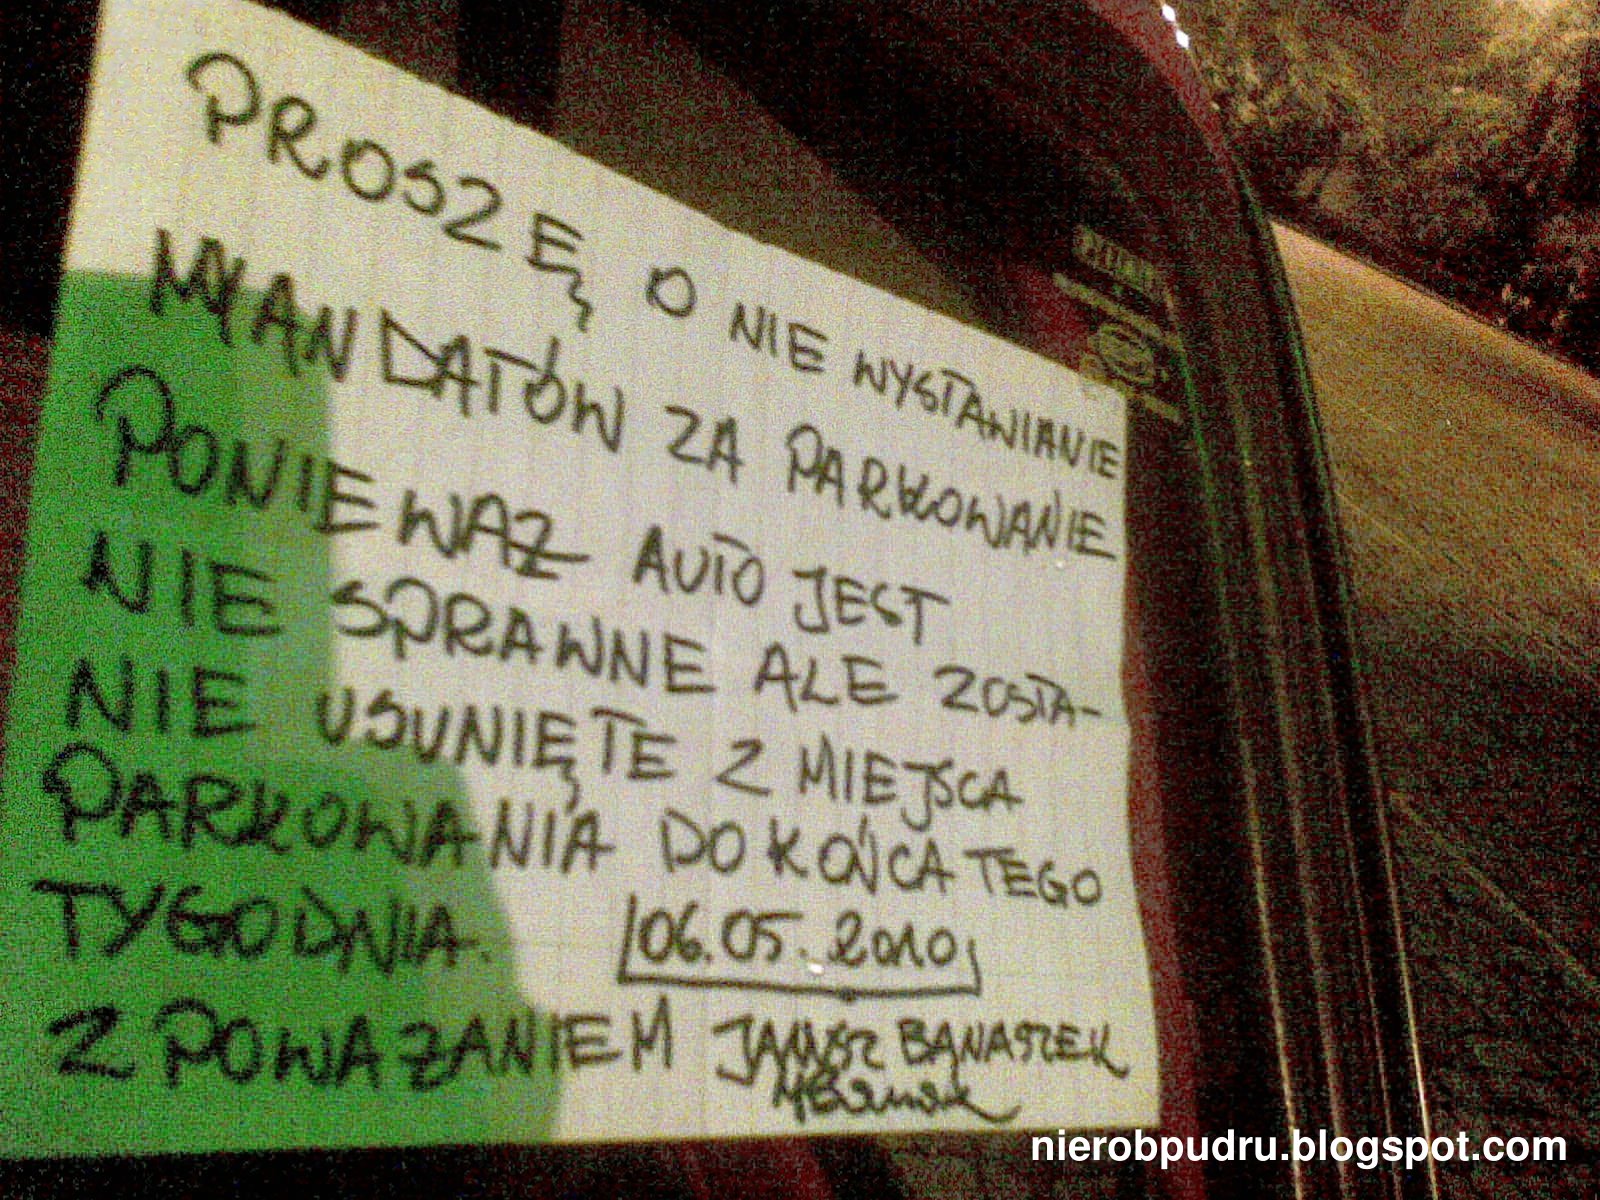 PROSZĘ O NIE WYSTAWIANIE
MANDATÓW ZA PARKOWANIE
PONIEWAŻ AUTO JEST
NIE SPRAWNE ALE ZOSTA-
NIE USUNIĘTE Z MIEJSCA
PARKOWANIA DO KOŃCA TEGO
TYGODNIA. 06.05.2010
Z POWAŻANIEM JANUSZ BANASZEK
nierobpudru.blogspot.com